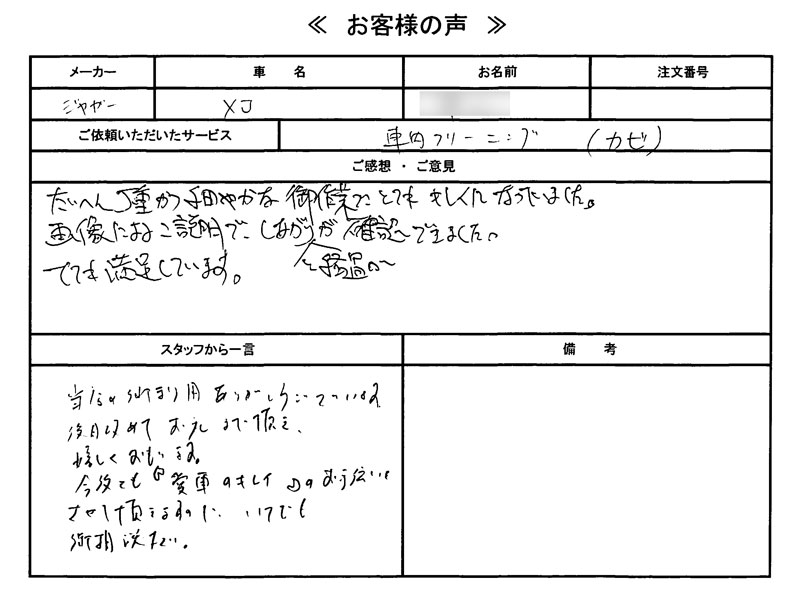 ≪ お客様の声 ≫
メーカー 車 名 お名前 注文番号
ジャガー XJ
ご依頼いただいたサービス 車内クリーニング (カビ)
ご感想 ・ ご意見
たいへん丁重かつ細やかな御作業で とても キレイになっていました。
画像による ご説明で しあがりが 確認できました。
とても満足しています。
スタッフから一言 備 考
当店の御利用 ありがとうございます
お礼 頂き、
嬉しく おもいます。
今後とも 愛車のキレイ のお手伝いを
させて頂きますので、いつでも
御相談下さい。